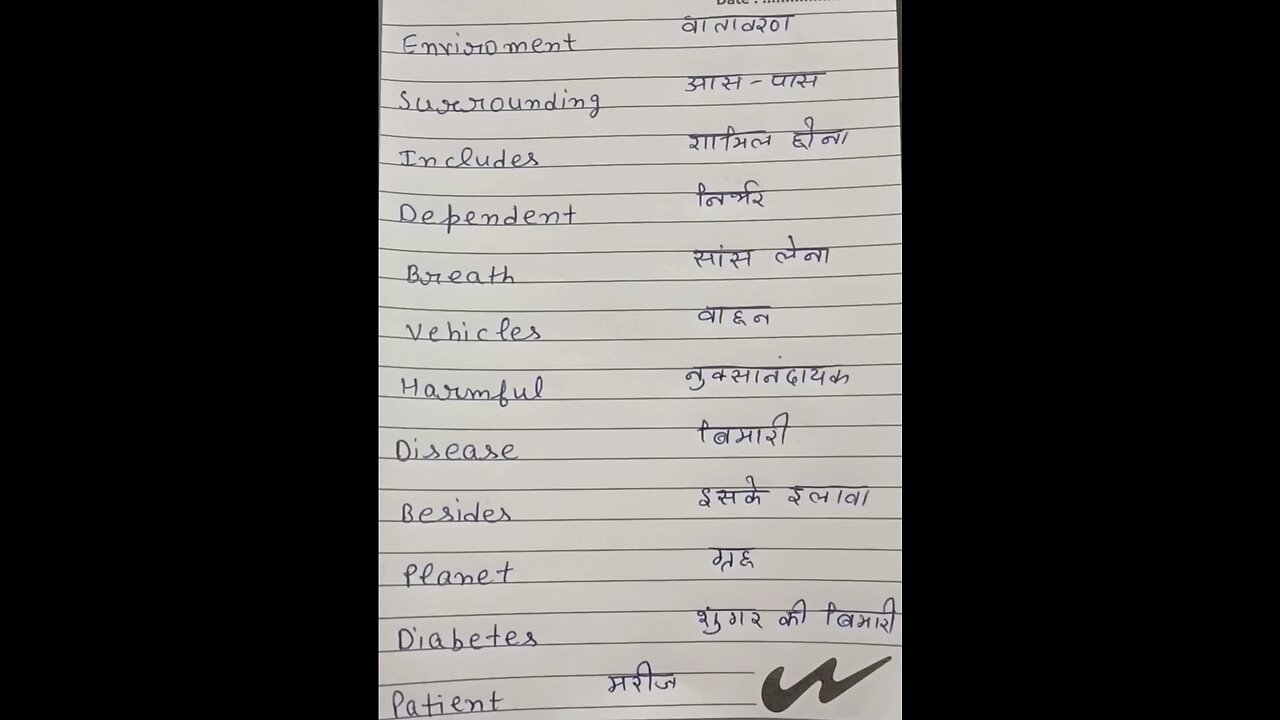 Date : ..................
Enviroment वातावरण
Surrounding आस-पास
Includes शामिल होना
Dependent निर्भर
Breath सांस लेना
Vehicles वाहन
Harmful नुक्सानंदायक
Disease बिमारी
Besides इसके इलावा
Planet ग्रह
Diabetes शुगर की बिमारी
Patient मरीज